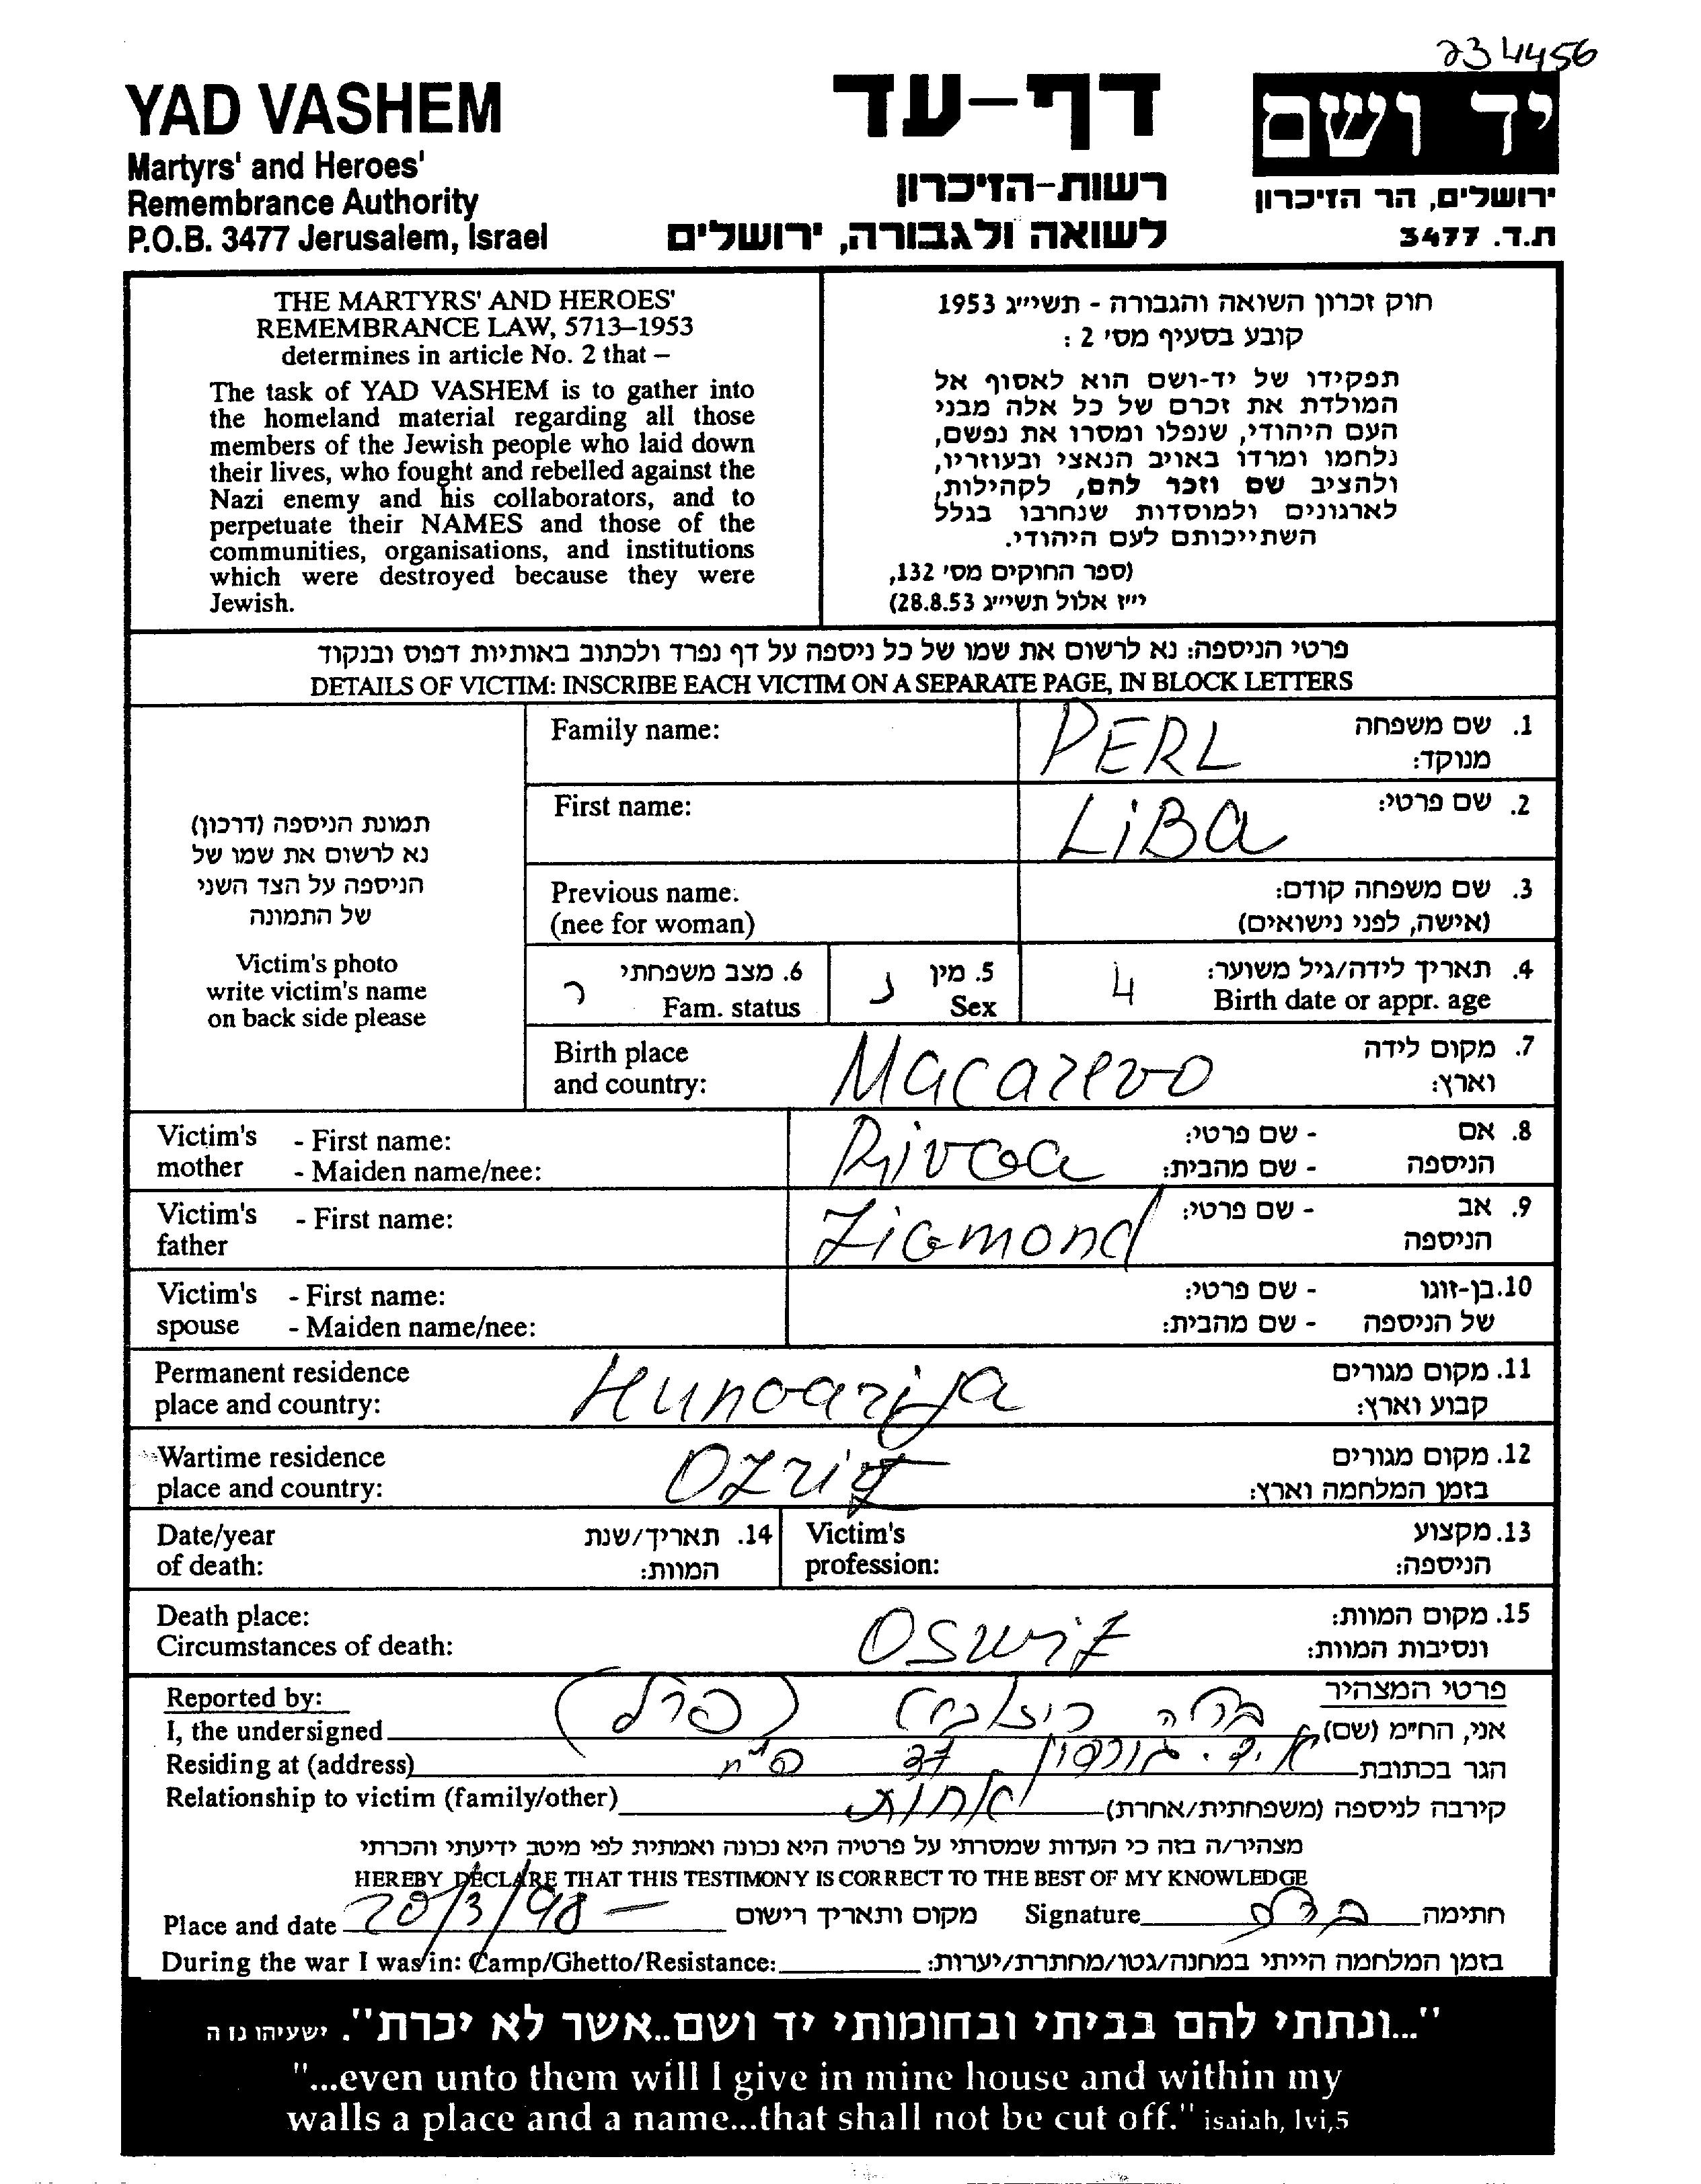 234456
YAD VASHEM
Martyrs' and Heroes'
Remembrance Authority
P.O.B. 3477 Jerusalem, Israel
דף-עד
רשות-הזיכרון
לשואה ולגבורה, ירושלים
יד ושם
ירושלים, הר הזיכרון
ת.ד. 3477
THE MARTYRS' AND HEROES'
REMEMBRANCE LAW, 5713–1953
determines in article No. 2 that –
The task of YAD VASHEM is to gather into
the homeland material regarding all those
members of the Jewish people who laid down
their lives, who fought and rebelled against the
Nazi enemy and his collaborators, and to
perpetuate their NAMES and those of the
communities, organisations, and institutions
which were destroyed because they were
Jewish.
חוק זכרון השואה והגבורה - תשי״ג 1953
קובע בסעיף מס׳ 2 :
תפקידו של יד-ושם הוא לאסוף אל
המולדת את זכרם של כל אלה מבני
העם היהודי, שנפלו ומסרו את נפשם,
נלחמו ומרדו באויב הנאצי ובעוזריו,
ולהציב שם וזכר להם, לקהילות,
לארגונים ולמוסדות שנחרבו בגלל
השתייכותם לעם היהודי.
(ספר החוקים מס׳ 132,
י״ז אלול תשי״ג 28.8.53)
פרטי הניספה: נא לרשום את שמו של כל ניספה על דף נפרד ולכתוב באותיות דפוס ובנקוד
DETAILS OF VICTIM: INSCRIBE EACH VICTIM ON A SEPARATE PAGE, IN BLOCK LETTERS
תמונת הניספה (דרכון)
נא לרשום את שמו של
הניספה על הצד השני
של התמונה
Victim's photo
write victim's name
on back side please
Family name: PERL 1. שם משפחה
מנוקד:
First name: LiBa 2. שם פרטי:
Previous name: 3. שם משפחה קודם:
(nee for woman) (אישה, לפני נישואים)
6. מצב משפחתי ר 5. מין נ 4 4. תאריך לידה/גיל משוער:
Fam. status Sex Birth date or appr. age
Birth place Macarevo 7. מקום לידה
and country: וארץ:
Victim's - First name: - שם פרטי: 8. אם
mother - Maiden name/nee: - שם מהבית: הניספה
Victim's - First name: Zigmond - שם פרטי: 9. אב
father הניספה
Victim's - First name: - שם פרטי: 10. בן-זוגו
spouse - Maiden name/nee: - שם מהבית: של הניספה
Permanent residence Hungarija 11. מקום מגורים
place and country: קבוע וארץ:
Wartime residence 12. מקום מגורים
place and country: בזמן המלחמה וארץ:
Date/year 14. תאריך/שנת Victim's 13. מקצוע
of death: המוות: profession: הניספה:
Death place: Oswiz 15. מקום המוות:
Circumstances of death: ונסיבות המוות:
Reported by: פרטי המצהיר
I, the undersigned (פרל) ברטה אני, הח״מ (שם)
Residing at (address) א.ד. גורדון פ״ת הגר בכתובת
Relationship to victim (family/other) אחות קירבה לניספה (משפחתית/אחרת)
מצהיר/ה בזה כי העדות שמסרתי על פרטיה היא נכונה ואמתית לפי מיטב ידיעתי והכרתי
HEREBY DECLARE THAT THIS TESTIMONY IS CORRECT TO THE BEST OF MY KNOWLEDGE
Place and date 20/3/98 מקום ותאריך רישום Signature חתימה
During the war I was in: Camp/Ghetto/Resistance: בזמן המלחמה הייתי במחנה/גטו/מחתרת/יערות:
"...ונתתי להם בביתי ובחומותי יד ושם..אשר לא יכרת". ישעיהו נו ה
"...even unto them will I give in mine house and within my
walls a place and a name...that shall not be cut off." isaiah, lvi,5